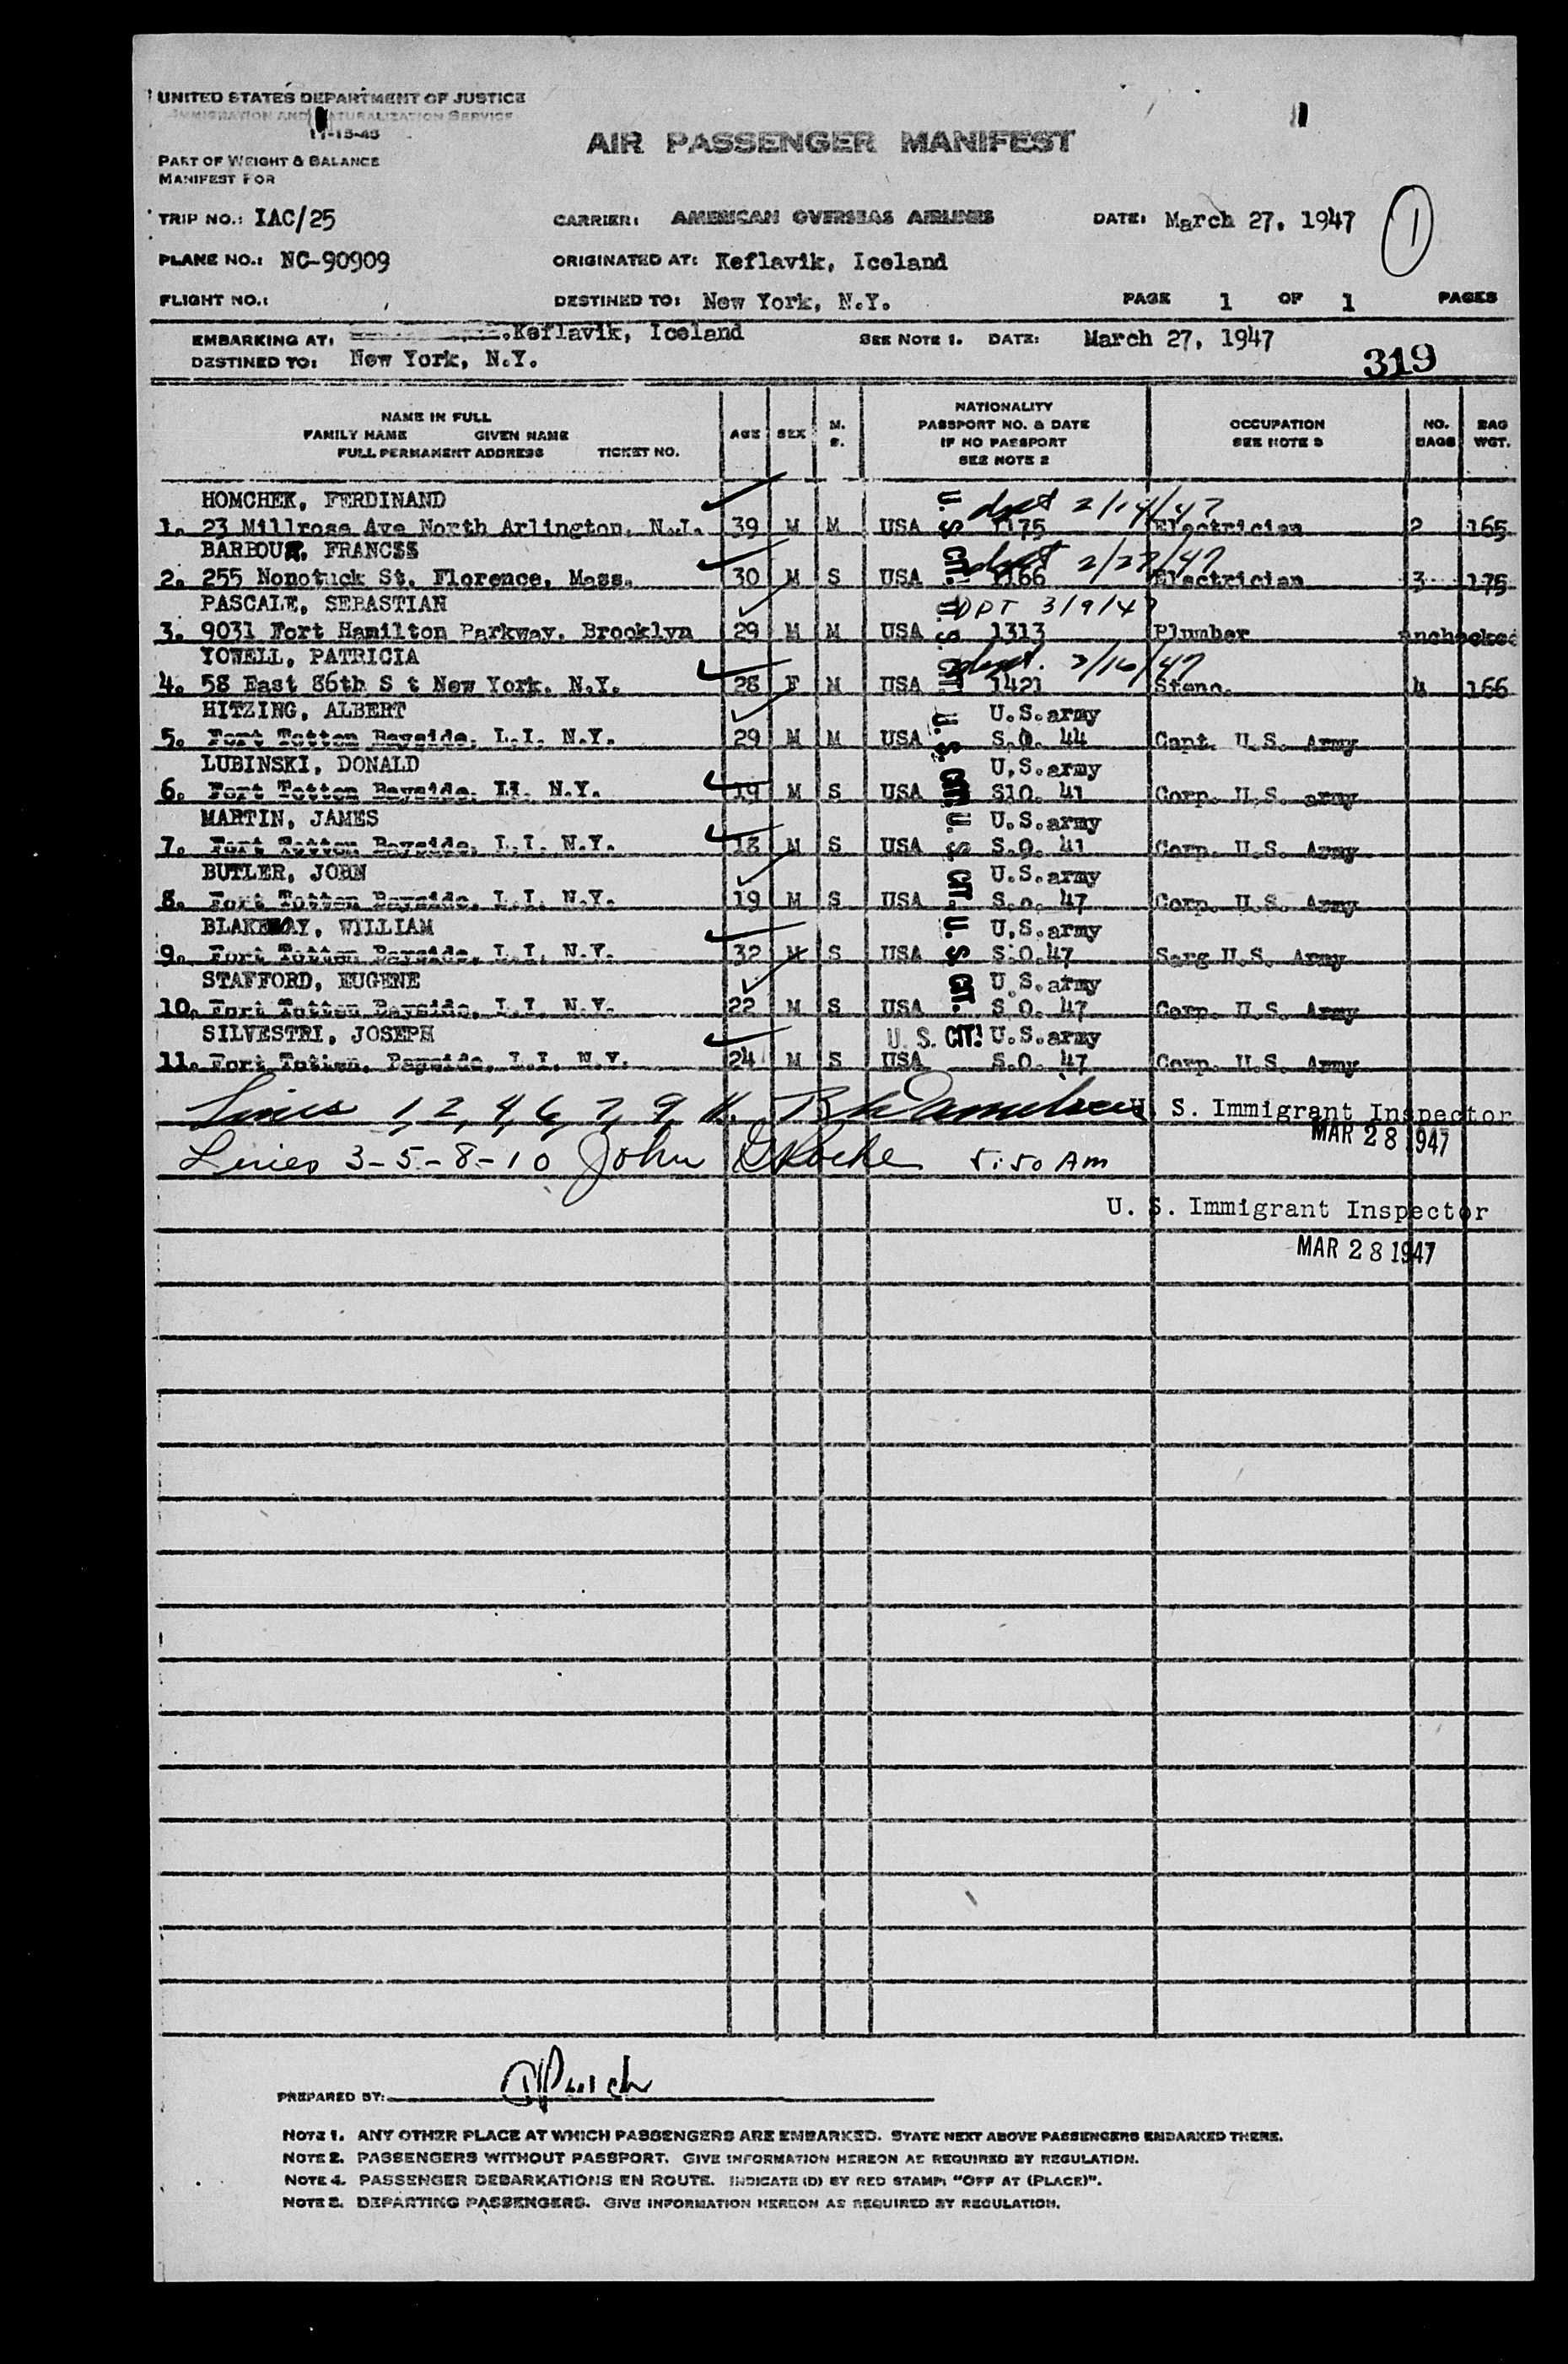 UNITED STATES DEPARTMENT OF JUSTICE
IMMIGRATION AND NATURALIZATION SERVICE
11-15-45
AIR PASSENGER MANIFEST
PART OF WEIGHT & BALANCE
MANIFEST FOR
TRIP NO.: IAC/25 CARRIER: AMERICAN OVERSEAS AIRLINES DATE: March 27, 1947 1
PLANE NO.: NC-90909 ORIGINATED AT: Keflavik, Iceland
FLIGHT NO.: DESTINED TO: New York, N.Y. PAGE 1 OF 1 PAGES
EMBARKING AT: Keflavik, Iceland SEE NOTE 1. DATE: March 27, 1947
DESTINED TO: New York, N.Y. 319
NAME IN FULL
FAMILY NAME GIVEN NAME
FULL PERMANENT ADDRESS TICKET NO.
AGE SEX M. S.
NATIONALITY
PASSPORT NO. & DATE
IF NO PASSPORT
SEE NOTE 2
OCCUPATION
SEE NOTE 3
NO. BAGS
BAG WGT.
HOMCHEK, FERDINAND dept 2/14/47
1. 23 Millrose Ave North Arlington, N.J. 39 M M USA U. S CIT. 1175 Electrician 2 165
BARBOUR, FRANCIS dept 2/27/47
2. 255 Nonotuck St. Florence, Mass. 30 M S USA 1166 Electrician 3 175
PASCALE, SEBASTIAN DPT 3/9/47
3. 9031 Fort Hamilton Parkway, Brooklyn 29 M M USA U. S. CIT. 1313 Plumber unchecked
YOWELL, PATRICIA dept. 2/16/47
4. 58 East 86th S t New York, N.Y. 28 F M USA 1421 Steno. 4 166
HITZING, ALBERT U.S.army
5. Fort Totten Bayside, L.I. N.Y. 29 M M USA U. S. CIT. S.O. 44 Capt. U.S. Army
LUBINSKI, DONALD U.S.army
6. Fort Totten Bayside. LI. N.Y. 19 M S USA S10. 41 Corp. U.S. army
MARTIN, JAMES U.S.army
7. Fort Totten Bayside, L.I. N.Y. 18 M S USA U. S CIT. S.O. 41 Corp. U.S. Army
BUTLER, JOHN U.S.army
8. Fort Totten Bayside, L.I. N.Y. 19 M S USA S.o. 47 Corp. U.S. Army
BLAKEWAY, WILLIAM U.S.army
9. Fort Totten Bayside, L.I. N.Y. 32 M S USA U. S CIT. S.O.47 Serg U.S. Army
STAFFORD, EUGENE U.S.army
10. Fort Totten Bayside, L.I. N.Y. 22 M S USA S.O. 47 Corp. U.S. Army
SILVESTRI, JOSEPH U. S. CIT. U.S.army
11. Fort Totten, Bayside, L.I. N.Y. 24 M S USA S.O. 47 Corp. U.S. Army
Lines 1, 2, 4, 6, 7, 9, 11. U. S. Immigrant Inspector
MAR 28 1947
Lines 3-5-8-10 John Roche 5:50 Am
U. S. Immigrant Inspector
MAR 28 1947
PREPARED BY:
NOTE 1. ANY OTHER PLACE AT WHICH PASSENGERS ARE EMBARKED. STATE NEXT ABOVE PASSENGERS EMBARKED THERE.
NOTE 2. PASSENGERS WITHOUT PASSPORT. GIVE INFORMATION HEREON AS REQUIRED BY REGULATION.
NOTE 4. PASSENGER DEBARKATIONS EN ROUTE. INDICATE (D) BY RED STAMP: "OFF AT (PLACE)".
NOTE 3. DEPARTING PASSENGERS. GIVE INFORMATION HEREON AS REQUIRED BY REGULATION.